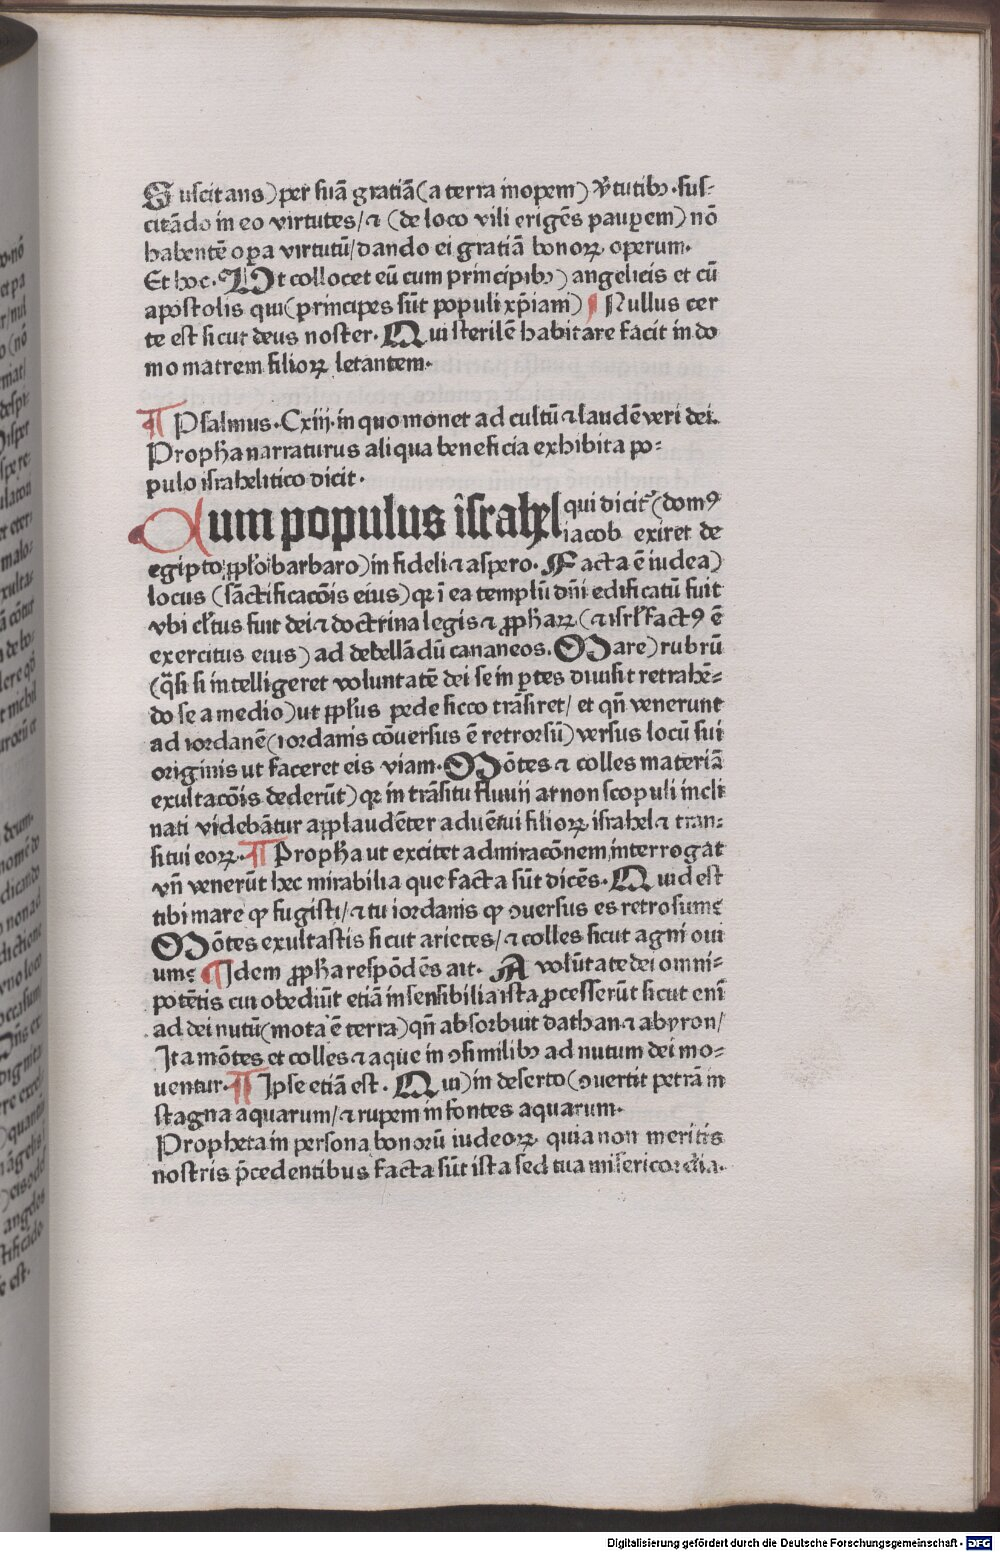 Suscitans) per suā gratiā (a terra inopem) v̓tutibꝫ · sus-
citādo in eo virtutes / ⁊ (de loco vili erigēs pauꝑem) nō
habentē oꝑa virtutū / dando ei gratiā bonoꝝ operum.
Et hoc · Ut collocet eū cum principibꝫ) angelicis et cū
apostolis qui (principes sūt populi xp̄iani) ¶ Nullus cer
te est sicut deus noster · Qui sterilē habitare facit in do
mo matrem filioꝝ letantem ·
¶ Psalmus · Cxiij · in quo monet ad cultū ⁊ laudē veri dei.
Propħa narraturus aliqua beneficia exhibita po-
pulo israhelitico dicit ·
Cum populus israhel qui dicit᷑ (domꝰ
iacob exiret de
egipto ꝓpl̓o barbaro) in fideli ⁊ aspero · Facta ē iudea)
locus (sāctificacōis eius) qꝛ ī ea templū dn̄i edificatū fuit
vbi cl̓tus fuit dei ⁊ doctrina legis ⁊ ꝓpħaꝝ (⁊ isrl̓ factꝰ ē
exercitus eius) ad debellādū cananeos · Mare) rubrū
(q̄si si intelligeret voluntatē dei se in ꝑtes diuisit retrahē-
do se a medio) ut ꝓpl̓us pede sicco trāsiret / et qn̄ venerunt
ad iordanē (iordanis cōuersus ē retrorsū) versus locū sui
originis ut faceret eis viam · Mōtes ⁊ colles materiā
exultacōis dederūt) qꝛ in trāsitu fluuij arnon scopuli incli
nati videbātur applaudēter aduētui filioꝝ israhel ⁊ tran-
situi eoꝝ · ¶ Propħa ut excitet admiracōnem interrogat
vn̄ venerūt hec mirabilia que facta sūt dicēs · Quid est
tibi mare ꝙ fugisti / ⁊ tu iordanis ꝙ ꝯuersus es retrosumꝫ
Mōtes exultastis sicut arietes / ⁊ colles sicut agni oui
umꝫ ¶ Idem ꝓpħa respōdēs ait · A volūtate dei omni-
potētis cui obediūt etiā insensibilia ista ꝓcesserūt sicut eni
ad dei nutū (mota ē terra) qn̄ absorbuit dathan ⁊ abyron /
Ita mōtes et colles ⁊ aque in ꝯsimilibꝫ ad nutum dei mo-
uentur · ¶ Ipse etiā est · Qui) in deserto (ꝯuertit petrā in
stagna aquarum / ⁊ rupem in fontes aquarum ·
Propheta in persona bonorū iudeoꝝ quia non meritis
nostris p̄cedentibus facta sūt ista sed tua misericordia ·
Digitalisierung gefördert durch die Deutsche Forschungsgemeinschaft - DFG